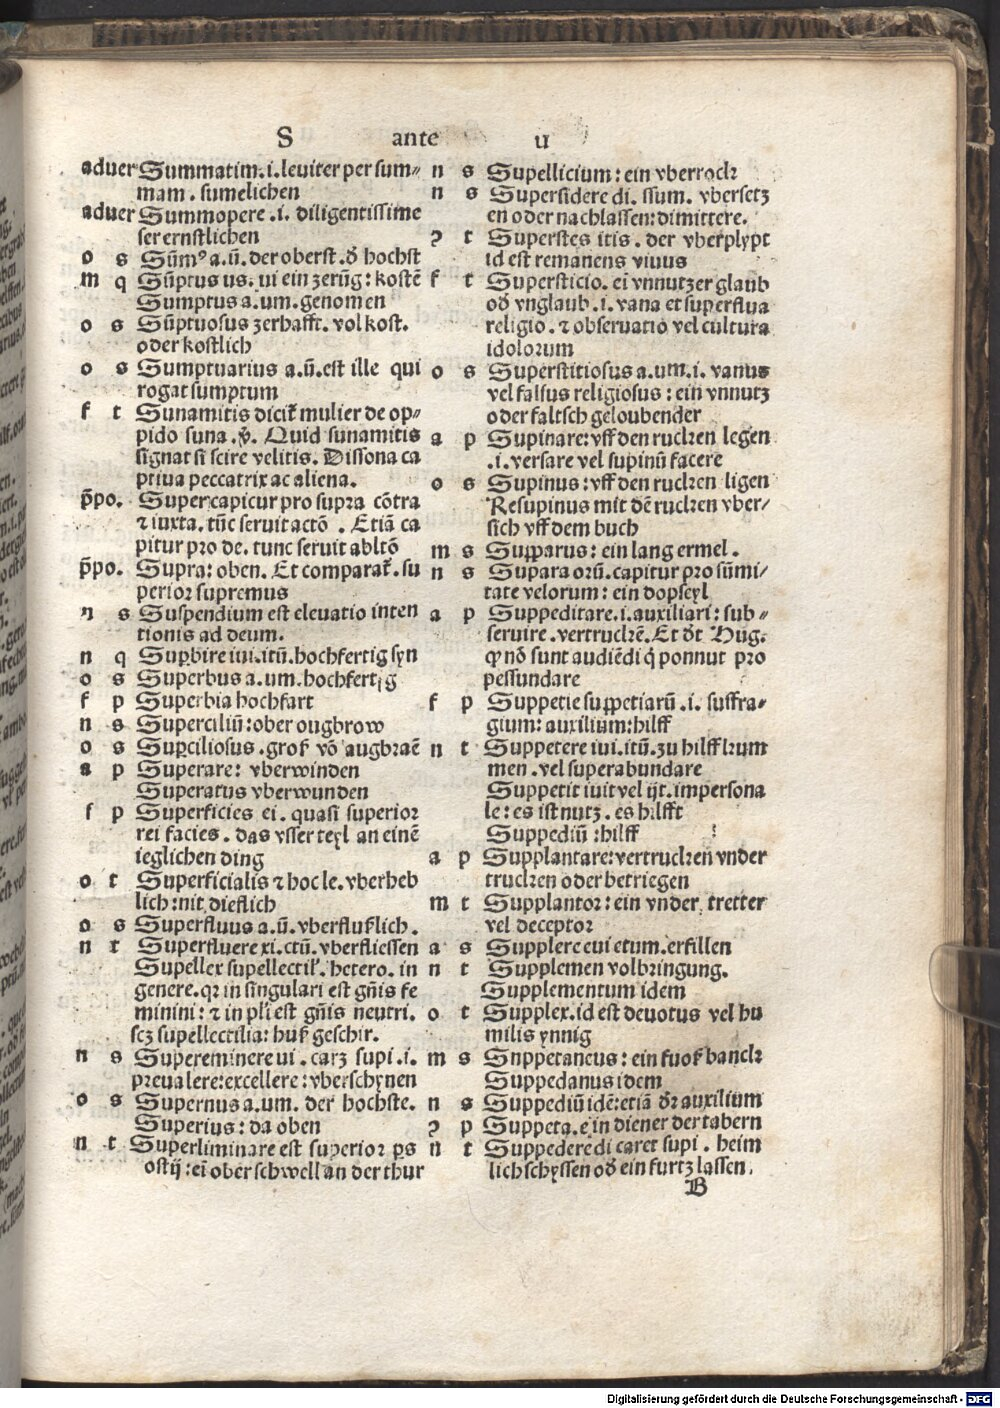 S ante u
aduer Summatim .i. leuiter per sum⸗
mam . sumelichen
aduer Summopere .i. diligentissime
ser ernstlichen
o s Sūmꝰ a.ū. der oberst. dͦ hochst
m q Sūptus us. ui ein zerūg : kostē
Sumptus a.um. genomen
o s Sūptuosus zerhafft. vol kost.
oder kostlich
o s Sumptuarius a.ū. est ille qui
rogat sumptum
f t Sunamitis dicit᷑ mulier de op⸗
pido suna .v̄. Quid sunamitis
signat si scire velitis. Dissona ca
ptiua peccatrix ac aliena.
p̄po. Super capitur pro supra cōtra
⁊ iuxta. tūc seruit actō . Etiā ca
pitur pro de. tunc seruit abltō
p̄po. Supra: oben. Et comparat᷑. su
perior supremus
n s Suspendium est eleuatio inten
tionis ad deum.
n q Suꝑbire iui.itū. hochfertig syn
o s Superbus a.um. hochfertig
f p Superbia hochfart
n s Superciliū: ober ougbrow
o s Suꝑciliosus . groß vō augbraē
a p Superare: vberwinden
Superatus vberwunden
f p Superficies ei. quasi superior
rei facies. das vsser teyl an einē
ieglichen ding
o t Superficialis ⁊ hoc le. vberheb
lich: nit dieflich
o s Superfluus a.ū. vberflußlich.
n t Superfluere xi. ctū. vberfliessen
Supellex supellectil᷑. hetero. in
genere. qꝛ in singulari est gn̄is fe
minini: ⁊ in pl̄i est gn̄is neutri.
scꝫ supellectilia: huß geschir.
n s Supereminere ui. carꝫ supi .i.
preualere: excellere: vberschynen
o s Supernus a.um. der hochste.
Superius: da oben
n t Superliminare est superior ꝑs
ostij: ei᷑ ober schwell an der thur
n s Supellicium: ein vberrock
n s Supersidere di. ssum. vbersetz
en oder nachlassen: dimittere.
ꝯ t Superstes itis. der vberplypt
id est remanens viuus
f t Supersticio. ei᷑ vnnutzer glaub
od᷑ vnglaub .i. vana et superflua
religio. ⁊ obseruatio vel cultura
idolorum
o s Superstitiosus a.um .i. vanus
vel falsus religiosus: ein vnnutz
oder faltsch geloubender
a p Supinare: vff den rucken legen
.i. versare vel supinū facere
o s Supinus: vff den rucken ligen
Resupinus mit dē rucken vber⸗
sich vff dem buch
m s Suꝑparus: ein lang ermel.
n s Supara orū. capitur pro sūmi⸗
tate velorum: ein dopseyl
a p Suppeditare .i. auxiliari: sub⸗
seruire. vertruckē. Et dt᷑ Hug.
ꝙ nō sunt audiēdi q̇ ponnut pro
pessundare
f p Suppetie suppetiarū .i. suffra⸗
gium: auxilium: hilff
n t Suppetere iui. itū. zu hilff kum
men. vel superabundare
Suppetit iuit vel ijt. impersona
le: es ist nutz. es hilfft
Suppediū: hilff
a p Supplantare: vertrucken vnder
trucken oder betriegen
m t Supplantor: ein vnder tretter
vel deceptor
a s Supplere eui etum. erfillen
n t Supplemen volbringung.
Supplementum idem
o t Supplex. id est deuotus vel hu
milis ynnig
m s Snppetaneus: ein fuoß banck
Suppedanus idem
n s Suppediū idē: etiā dr᷑ auxilium
ꝯ p Suppeta. e in diener der tabern
n t Suppedere di caret supi. heim
lich schyssen od᷑ ein furtz lassen.
B
Digitalisierung gefördert durch die Deutsche Forschungsgemeinschaft - DFG